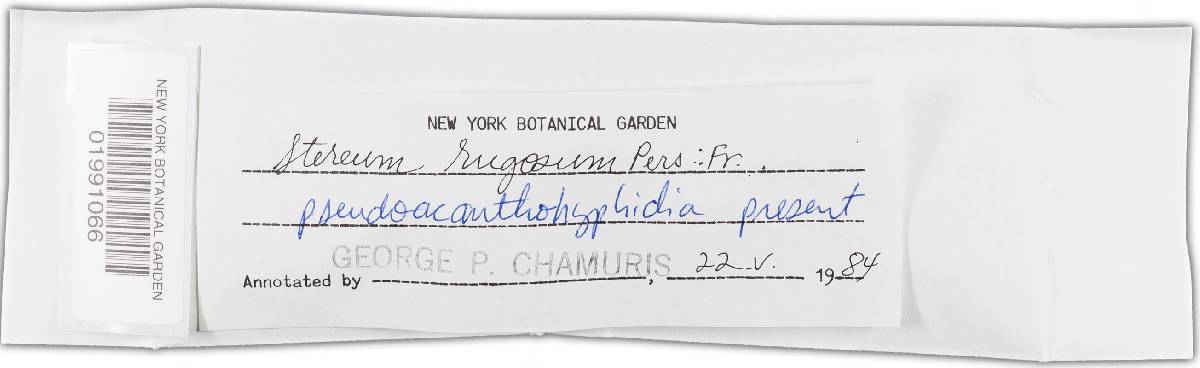 NEW YORK BOTANICAL GARDEN
01991066
NEW YORK BOTANICAL GARDEN
Stereum rugosum Pers.:Fr.
pseudoacanthohyphidia present
GEORGE P. CHAMURIS
Annotated by , 22.V. 1984